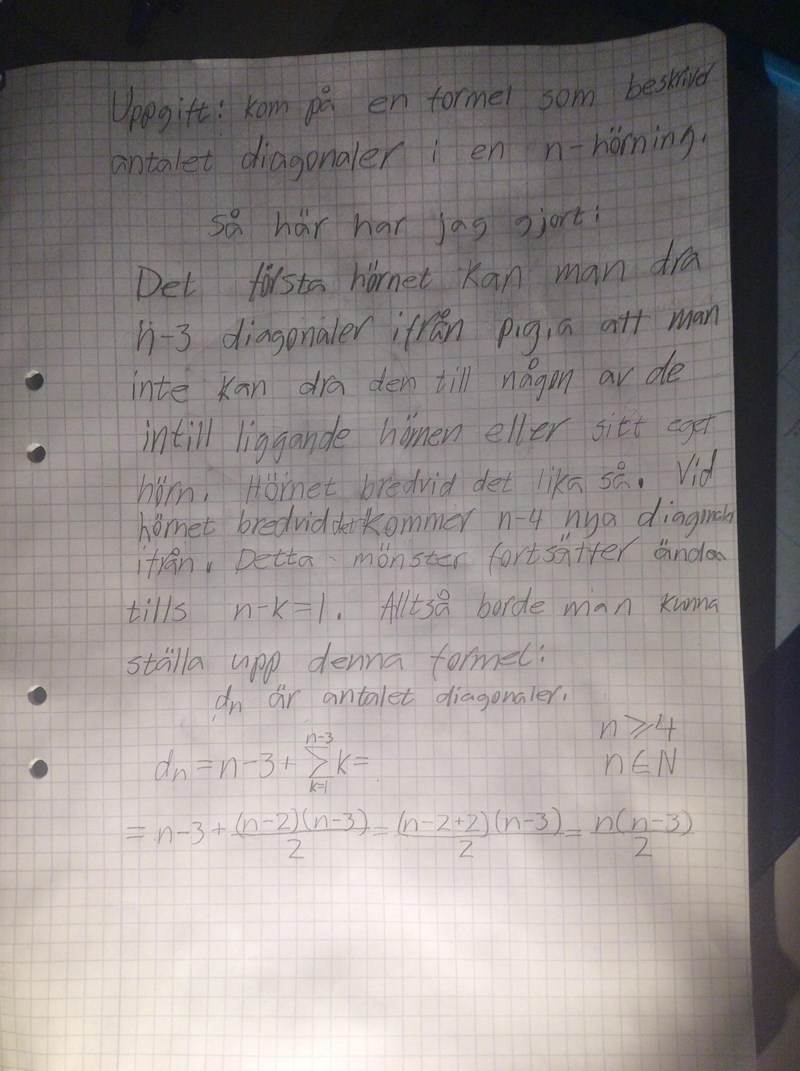 Uppgift: kom på en formel som beskriver
antalet diagonaler i en n-hörning.
Så här har jag gjort:
Det första hörnet kan man dra
n-3 diagonaler ifrån p.g.a att man
inte kan dra dem till någon av de
intill liggande hörnen eller sitt eget
hörn. Hörnet bredvid det lika så. Vid
hörnet bredvid det kommer n-4 nya diagonaler
ifrån. Detta mönster fortsätter ända
tills n-k=1. Alltså borde man kunna
ställa upp denna formel:
dₙ är antalet diagonaler.
n ≥ 4
dₙ = n-3 + \sum_{k=1}^{n-3} k = n ∈ N
= n-3 + \frac{(n-2)(n-3)}{2} = \frac{(n-2+2)(n-3)}{2} = \frac{n(n-3)}{2}